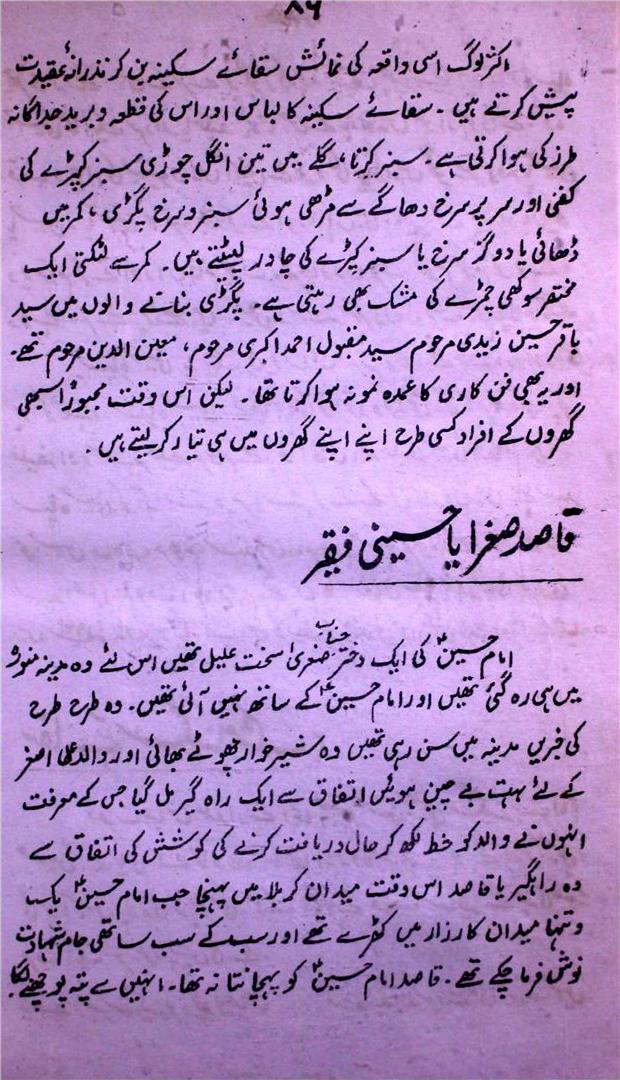 ۸۶
اکثر لوگ اسی واقعہ کی نمائش سقائے سکینہ بن کر نذرانۂ عقیدت
پیش کرتے ہیں ۔ سقائے سکینہ کا لباس اور اس کی قطع و برید جداگانہ
طرز کی ہوا کرتی ہے ۔ سبز کرتا، گلے میں تین انگل چوڑی سبز کپڑے کی
کفنی اور سر پر سرخ دھاگے سے مڑھی ہوئی سبز و سرخ پگڑی ، کمر میں
ڈھائی یا دو گز سرخ یا سبز کپڑے کی چادر لپیٹتے ہیں ۔ کمر سے لٹکتی ایک
مختصر سوکھی چمڑے کی مشک بھی رہتی ہے ۔ پگڑی بنانے والوں میں سید
باقر حسین زیدی مرحوم سید مقبول احمد اکبری مرحوم ، معین الدین مرحوم تھے ۔
اور یہ بھی فن کاری کا عمدہ نمونہ ہوا کرتا تھا ۔ لیکن اس وقت مجبوراً سبھی
گھروں کے افراد کسی طرح اپنے اپنے گھروں میں ہی تیار کر لیتے ہیں ۔
قاصد صغرا یا حسینی فقیر
امام حسینؑ کی ایک دختر جناب صغریٰ سخت علیل تھیں اس لئے وہ مدینہ منورہ
میں ہی رہ گئی تھیں اور امام حسینؑ کے ساتھ نہیں آئی تھیں ۔ وہ طرح طرح
کی خبریں مدینہ میں سن رہی تھیں وہ شیر خوار چھوٹے بھائی اور والد علی اصغر
کے لئے بہت بے چین ہوئیں اتفاق سے ایک راہ گیر مل گیا جس کے معرفت
انہوں نے والد کو خط لکھ کر حال دریافت کرنے کی کوشش کی اتفاق سے
وہ راہگیر یا قاصد اس وقت میدان کربلا میں پہنچا جب امام حسینؑ یک
و تنہا میدان کارزار میں کھڑے تھے اور سب کے سب ساتھی جام شہادت
نوش فرما چکے تھے ۔ قاصد امام حسینؑ کو پہچانتا نہ تھا ۔ انہیں سے پتہ پوچھنے لگا ۔